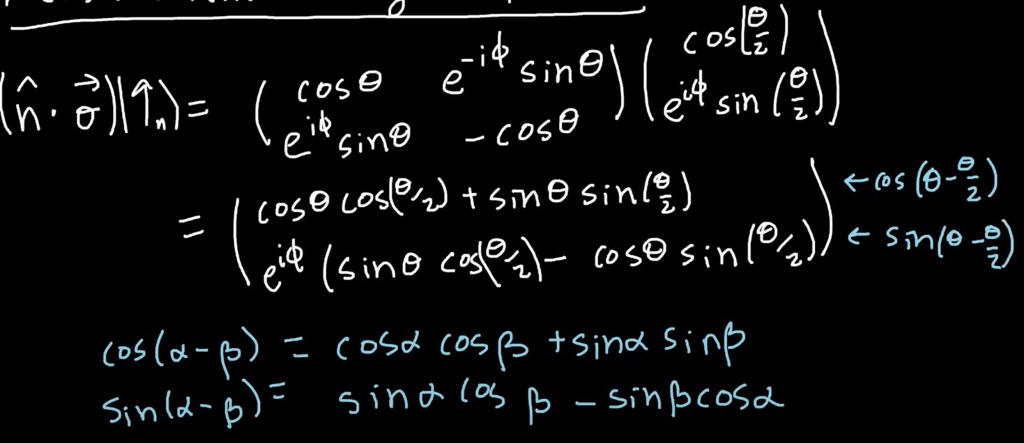 (n̂ · σ⃗)|↑ₙ⟩ = ( cosθ e^{-iϕ} sinθ ) ( cos(θ/2) )
( e^{iϕ} sinθ - cosθ ) ( e^{iϕ} sin(θ/2) )
= ( cosθ cos(θ/2) + sinθ sin(θ/2) ) ← cos(θ - θ/2)
( e^{iϕ} (sinθ cos(θ/2) - cosθ sin(θ/2)) ) ← sin(θ - θ/2)
cos(α - β) = cosα cosβ + sinα sinβ
sin(α - β) = sinα cos β - sinβ cosα